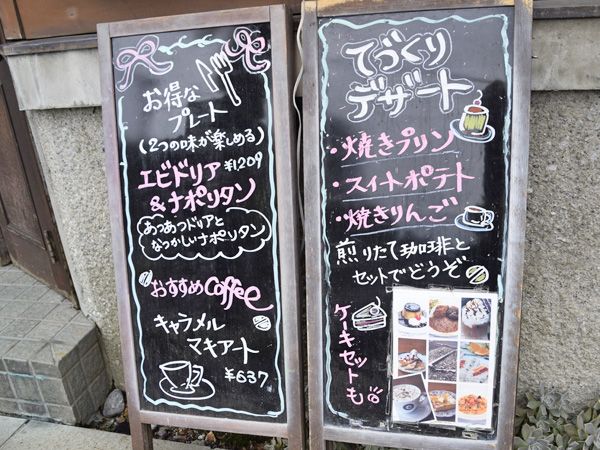 お得な
プレート
(2つの味が楽しめる)
エビドリア ¥1,209
&ナポリタン
あつあつドリアと
なつかしいナポリタン
おすすめcoffee
キャラメル
マキアート
¥637
てづくり
デザート
・焼きプリン
・スイートポテト
・焼きりんご
煎りたて珈琲と
セットでどうぞ
ケーキセットも